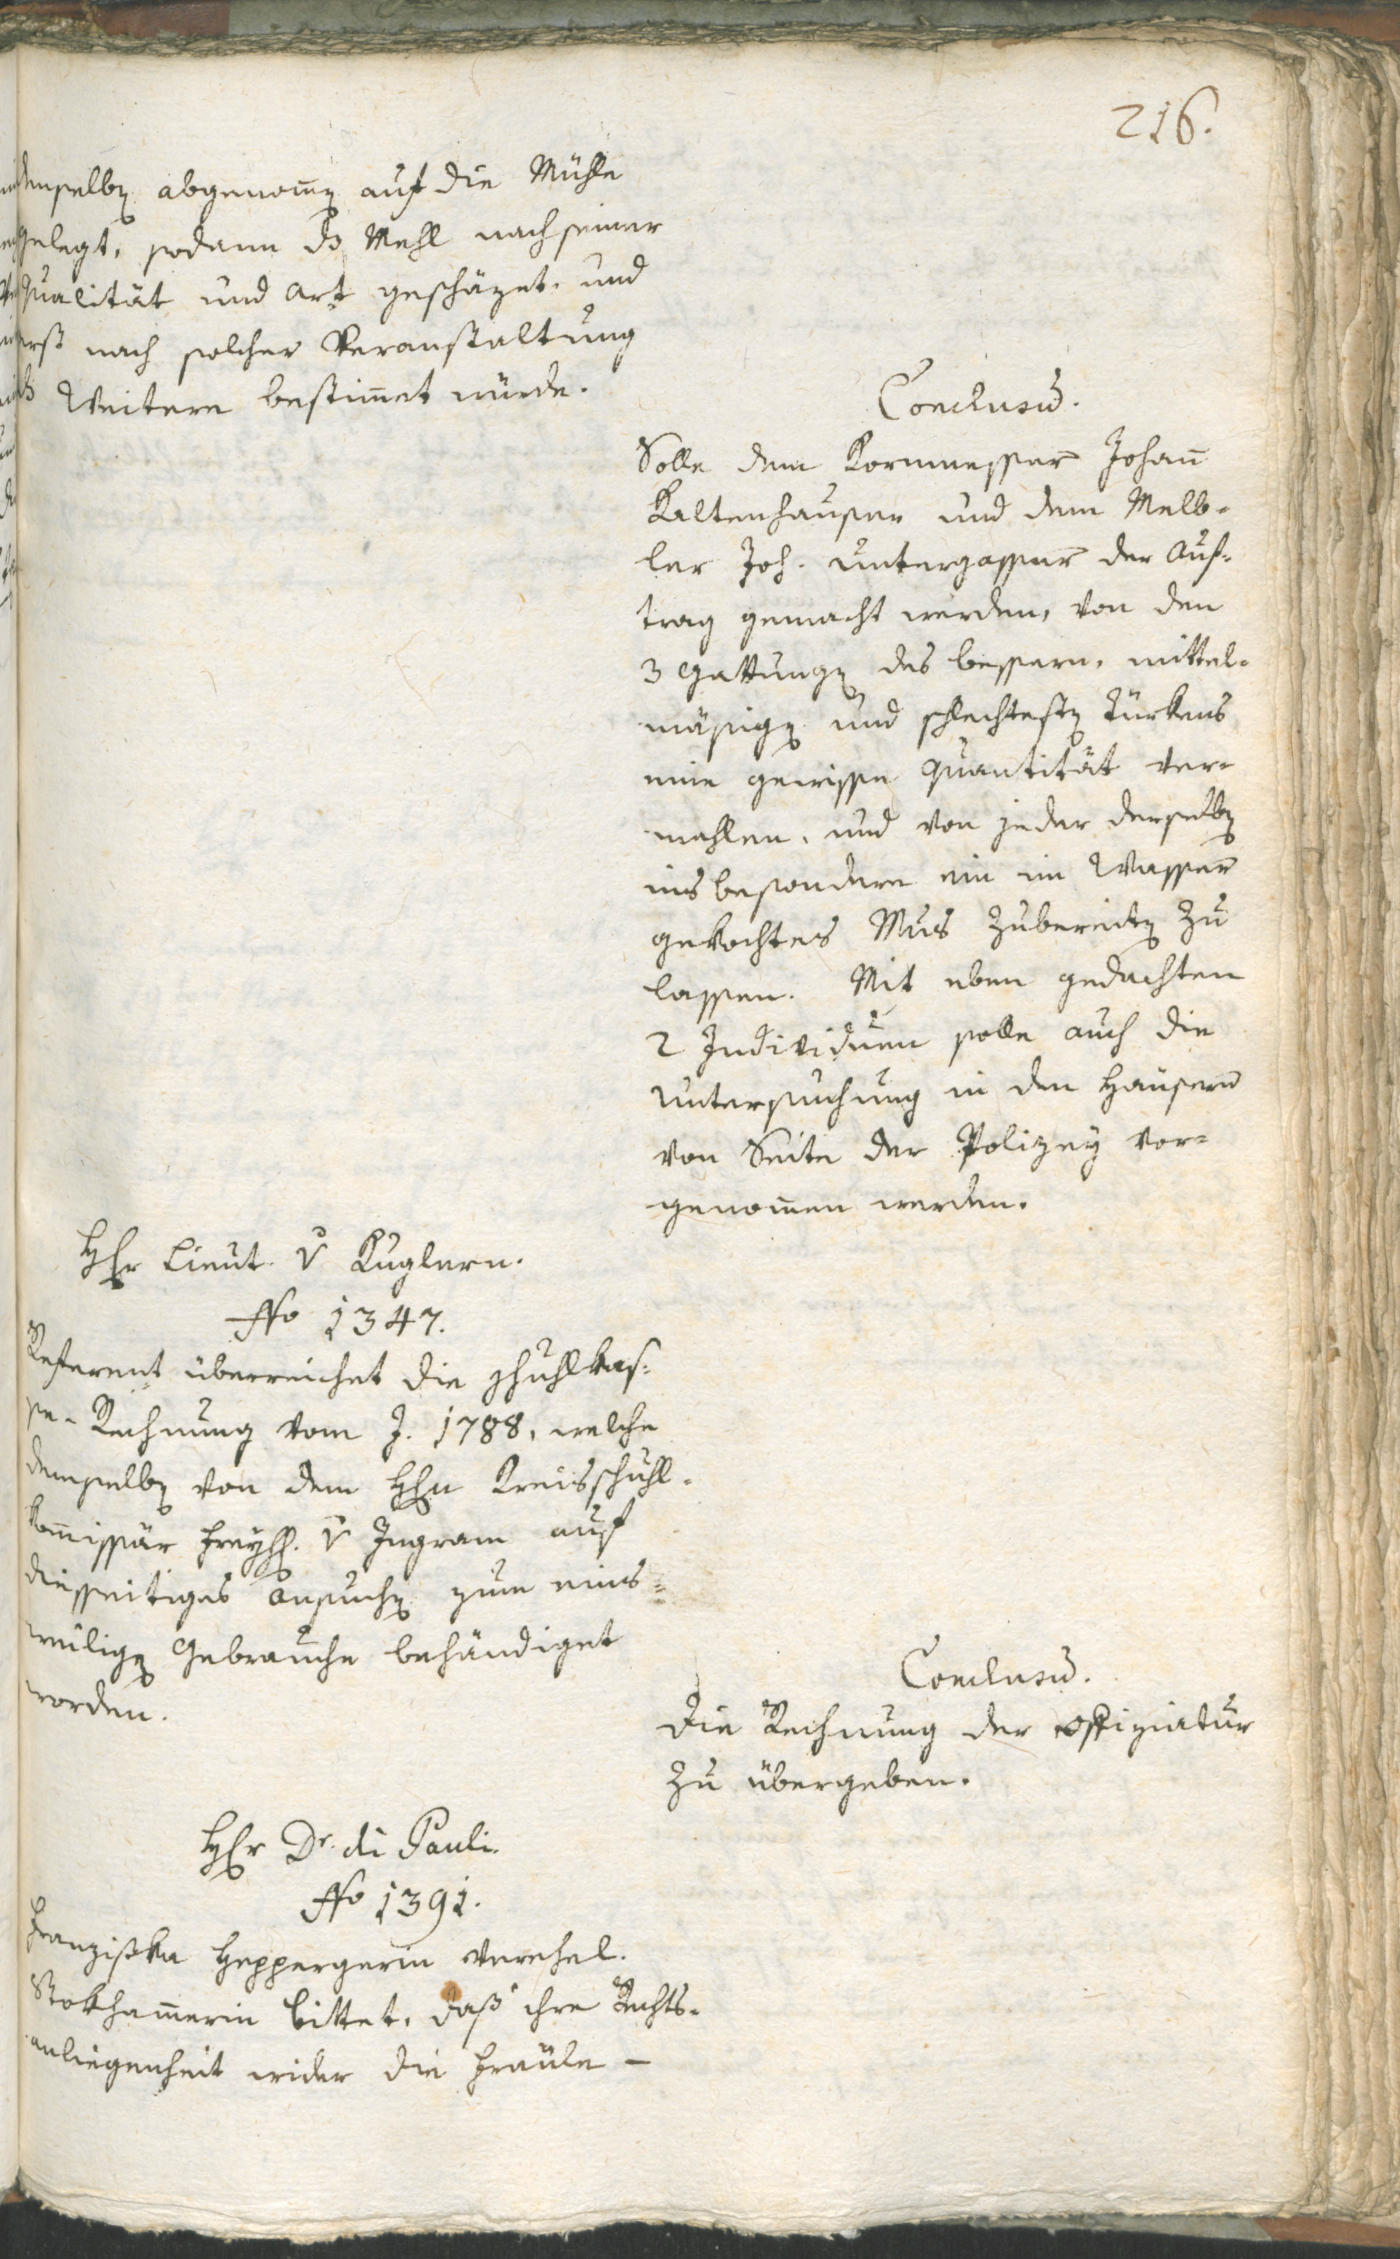 216.
denselben abgenom̄en auf die Mühle
gelegt, sodann ds Mehl nach seiner
Qualität und Art geschäzet, und
erst nach solcher Veranstaltung
ds Weitere bestim̄et würde.
Conclusum.
Solle dem Kornmesser Johan̄
Kaltenhauser und dem Melb-
ler Joh. Untergasser der Auf-
trag gemacht werden, von den
3 Gattungen des bessern, mittel-
mäsigen und schlechtesten Türkens
eine gewisse Quantität ver-
mahlen, und von jeder derselben
insbesondere ein im Wasser
gekochtes Mus zubereiten zu
lassen. Mit eben gedachten
2 Individuen solle auch die
Untersuchung in den Häusern
von Seite der Polizey vor-
genom̄en werden.
HEr Lieut. v Kuglern.
No 1347.
Referent überreichet die Schuhlkas-
se-Rechnung vom J. 1788, welche
demselben von dem HEn Kreisschuhl-
kom̄issär Freyh. v Ingram auf
diesseitiges Ansuchen zum eins-
weiligen Gebrauche behändiget
worden.
Conclusum.
Die Rechnung der Offiziatur
zu übergeben.
HEr Dr. di Pauli.
No 1391.
Franziska Heppergerin verehel.
Stokham̄erin bittet, daß ihre Rechts-
anliegenheit wider die Fräule –